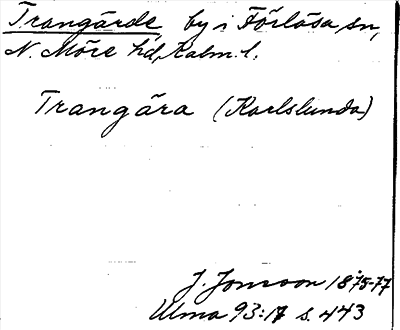 Trangärde, by i Förlösa sn,
N. Möre hd, Kalm. l.
Trangära (Karlslunda)
J. Jonsson 1875-77
Ulma 93:17 s. 443